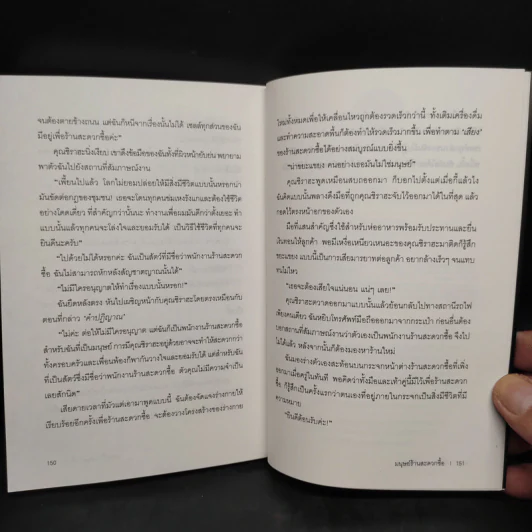 จนต้องตายข้างถนน แต่ฉันก็หนีจากเรื่องนั้นไม่ได้ เซลล์ทุกส่วนของฉัน
มีอยู่เพื่อร้านสะดวกซื้อค่ะ”
คุณชิราฮะนิ่งเงียบ เขาดึงข้อมือของฉันทั้งที่มีหน้ายับย่น พยายาม
พาตัวฉันไปยังสถานที่สัมภาษณ์งาน
“เพี้ยนไปแล้ว โลกไม่ยอมปล่อยให้มีสิ่งมีชีวิตแบบนั้นหรอกน่า
มันขัดต่อกฎของชุมชน! เธอจะโดนทุกคนข่มเหงรังแกและต้องใช้ชีวิต
อย่างโดดเดี่ยว ที่สำคัญกว่านั้นนะ ทำงานเพื่อผมมันดีกว่าตั้งเยอะ ทำ
แบบนั้นแล้วทุกคนจะโล่งใจและยอมรับได้ เป็นวิธีใช้ชีวิตที่ทุกคนจะ
ยินดีนะครับ”
“ไปด้วยไม่ได้หรอกค่ะ ฉันเป็นสัตว์ที่มีชื่อว่าพนักงานร้านสะดวก
ซื้อ ฉันไม่สามารถหักหลังสัญชาตญาณนั้นได้”
“ไม่มีใครอนุญาตให้ทำแบบนั้นหรอก!”
ฉันยืดหลังตรง หันไปเผชิญหน้ากับคุณชิราฮะโดยตรงเหมือนกับ
ตอนที่กล่าว ‘คำปฏิญาณ’
“ไม่ค่ะ ต่อให้ไม่มีใครอนุญาต แต่ฉันก็เป็นพนักงานร้านสะดวกซื้อ
สำหรับฉันที่เป็นมนุษย์ การมีคุณชิราฮะอยู่ด้วยอาจจะทำให้สะดวกกว่า
ทั้งครอบครัวและเพื่อนพ้องก็พากันวางใจและยอมรับได้ แต่สำหรับฉัน
ที่เป็นสัตว์ซึ่งมีชื่อว่าพนักงานร้านสะดวกซื้อ ตัวคุณไม่มีความจำเป็น
เลยสักนิด”
เสียดายเวลาที่มัวแต่เอามาพูดแบบนี้ ฉันต้องจัดแจงร่างกายให้
เรียบร้อยอีกครั้งเพื่อร้านสะดวกซื้อ จะต้องวางโครงสร้างของร่างกาย
160
ใหม่ทั้งหมดเพื่อให้เคลื่อนไหวถูกต้องรวดเร็วกว่านี้ ทั้งเติมเครื่องดื่ม
และทำความสะอาดพื้นก็ต้องทำให้รวดเร็วมากขึ้น เพื่อทำตาม ‘เสียง’
ของร้านสะดวกซื้อได้อย่างสมบูรณ์แบบยิ่งขึ้น
“น่าขยะแขยง คนอย่างเธอมันไม่ใช่มนุษย์”
คุณชิราฮะพูดเหมือนสบถออกมา ก็บอกไปตั้งแต่เมื่อกี้แล้วไง
ฉันคิดแบบนั้นพลางดึงมือที่ถูกคุณชิราฮะจับไว้ออกมาได้ในที่สุด แล้ว
กอดไว้ตรงหน้าอกของตัวเอง
มือที่แสนสำคัญซึ่งใช้สำหรับห่ออาหารพร้อมรับประทานและยื่น
เงินทอนให้ลูกค้า พอมีเหงื่อเหนียวเหนอะของคุณชิราฮะมาติดก็รู้สึก
ขยะแขยง แบบนี้เป็นการเสียมารยาทต่อลูกค้า อยากล้างเร็วๆ จนแทบ
ทนไม่ไหว
“เธอจะต้องเสียใจแน่นอน แน่ๆ เลย!”
คุณชิราฮะตวาดออกมาแบบนั้นแล้วย้อนกลับไปทางสถานีรถไฟ
เพียงคนเดียว ฉันหยิบโทรศัพท์มือถือออกมาจากกระเป๋า ก่อนอื่นต้อง
บอกสถานที่สัมภาษณ์งานว่าตัวเองเป็นพนักงานร้านสะดวกซื้อ จึงไป
ไม่ได้แล้ว หลังจากนั้นก็ต้องมองหาร้านใหม่
ฉันมองร่างตัวเองสะท้อนบนกระจกหน้าต่างร้านสะดวกซื้อที่เพิ่ง
ออกมาเมื่อครู่ในทันที พอคิดว่าทั้งมือและเท้าคู่นี้มีไว้เพื่อร้านสะดวก
ซื้อ ก็รู้สึกเป็นครั้งแรกว่าตนเองที่อยู่ภายในกระจกเป็นสิ่งมีชีวิตที่มี
ความหมาย
“ยินดีต้อนรับค่ะ!”
มนุษย์ร้านสะดวกซื้อ | 161